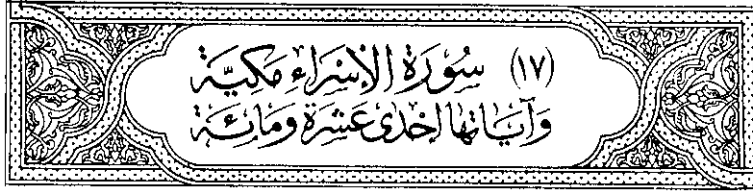 (١٧) سُورَةُ الْإِسْرَاءِ مَكِّيَّة
وَآيَاتُهَا إِحْدَى عَشْرَةَ وَمَائِة